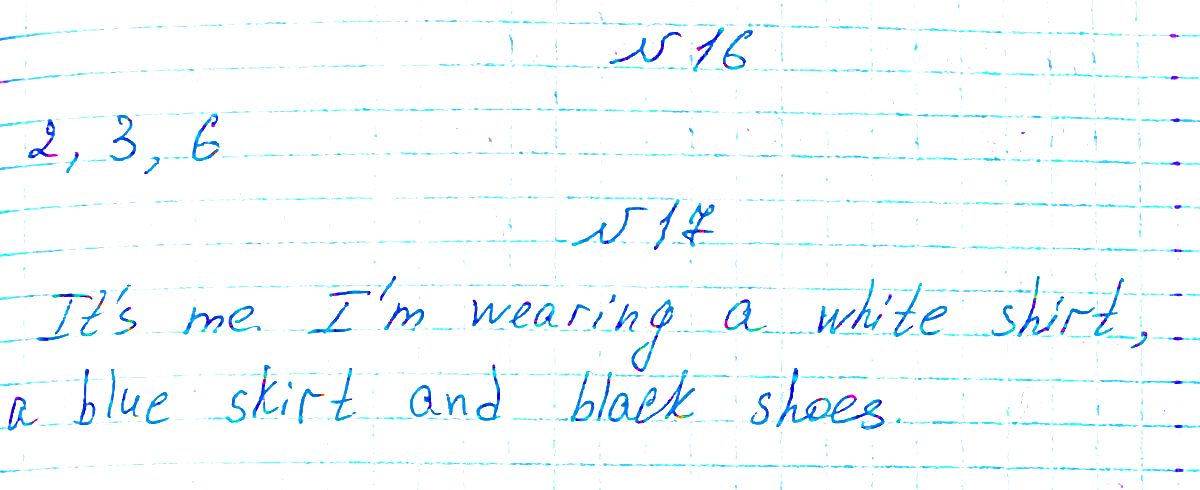 № 16
2, 3, 6
№ 17
It's me. I'm wearing a white shirt,
a blue skirt and black shoes.